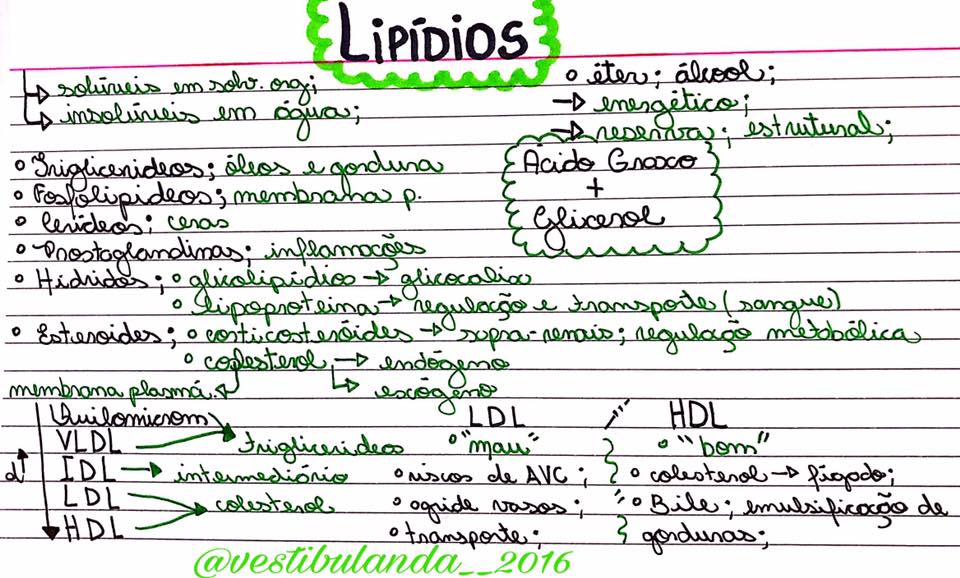 LIPÍDIOS
→ solúveis em solv. org;
→ insolúveis em água;
o éter; álcool;
→ energético;
→ reserva; estrutural;
o Triglicerídeos; óleos e gordura
o Fosfolipídeos; membrana p.
o Cerídeos; ceras
o Prostaglandinas; inflamações
Ácido Graxo
+
Glicerol
o Híbridos; o glicolipídios → glicocalix
o lipoproteína → regulação e transporte (sangue)
o Esteroides; o corticosteróides → supra-renais; regulação metabólica
o colesterol → endógeno
→ exógeno
membrana plasmá.
Quilomicrom
VLDL → triglicerídeos
d↑ IDL → intermediário
LDL → colesterol
HDL
LDL
o "mau"
o riscos de AVC;
o agride vasos;
o transporte;
HDL
o "bom"
o colesterol → fígado;
o Bile; emulsificação de
gorduras;
@vestibulanda__2016